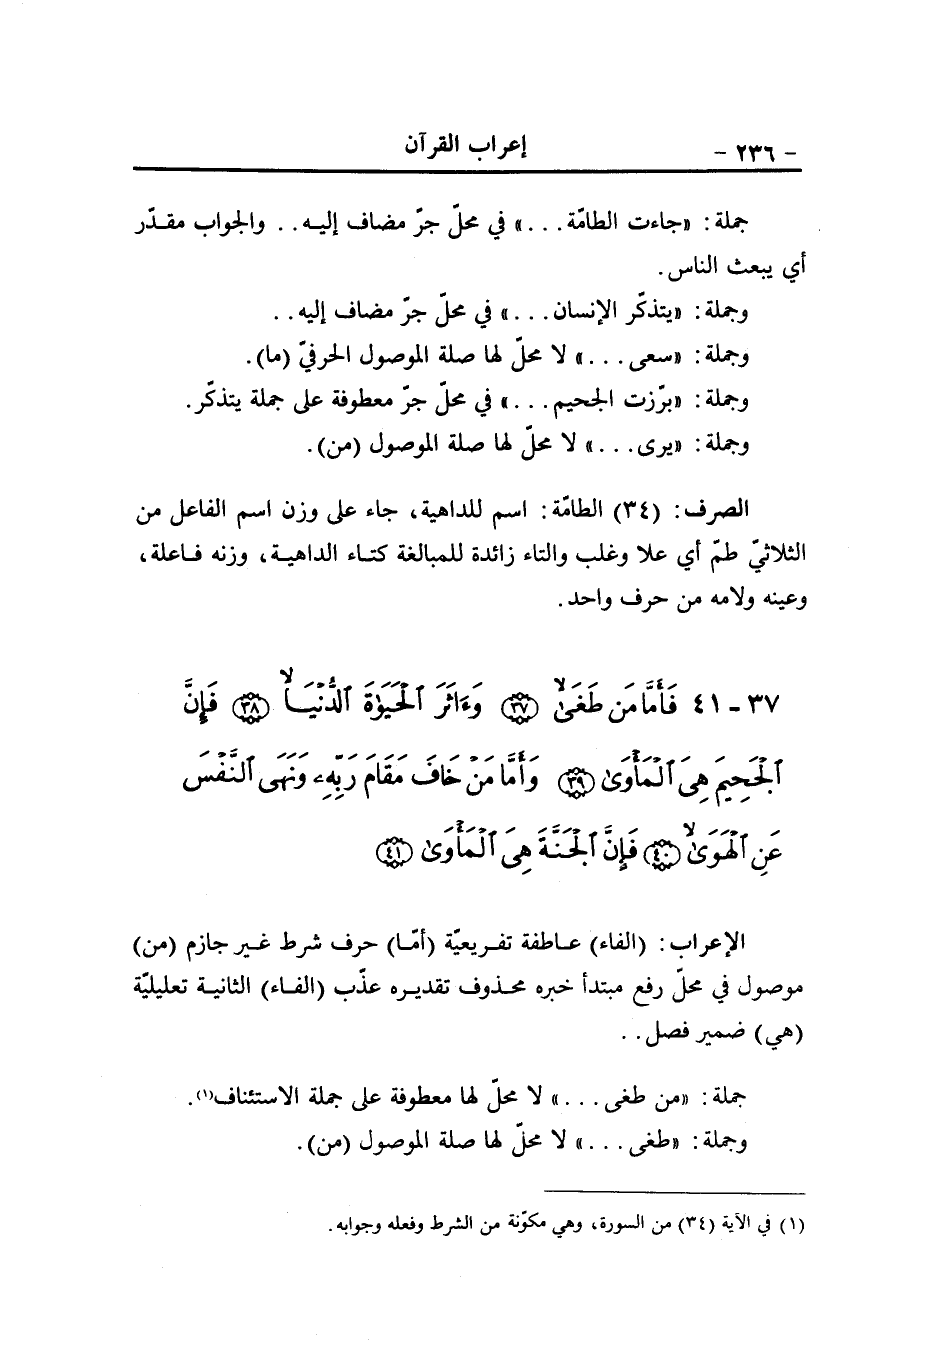 - ٢٣٦ - إعراب القرآن
جملة: «جاءت الطامّة...» في محلّ جرّ مضاف إليـه.. والجواب مقـدّر
أي يبعث الناس.
وجملة: «يتذكّر الإنسان...» في محلّ جرّ مضاف إليه..
وجملة: «سعى...» لا محلّ لها صلة الموصول الحرفيّ (ما).
وجملة: «برّزت الجحيم...» في محلّ جرّ معطوفة على جملة يتذكّر.
وجملة: «يرى...» لا محلّ لها صلة الموصول (من).
الصرف: (٣٤) الطامّة: اسم للداهية، جاء على وزن اسم الفاعل من
الثلاثيّ طمّ أي علا وغلب والتاء زائدة للمبالغة كتـاء الداهيـة، وزنه فـاعلة،
وعينه ولامه من حرف واحد.
٣٧ - ٤١ فَأَمَّا مَن طَغَىٰ ۙ ﴿٣٧﴾ وَءَاثَرَ ٱلْحَيَوٰةَ ٱلدُّنْيَا ۙ ﴿٣٨﴾ فَإِنَّ
ٱلْجَحِيمَ هِىَ ٱلْمَأْوَىٰ ﴿٣٩﴾ وَأَمَّا مَنْ خَافَ مَقَامَ رَبِّهِۦ وَنَهَى ٱلنَّفْسَ
عَنِ ٱلْهَوَىٰ ۙ ﴿٤٠﴾ فَإِنَّ ٱلْجَنَّةَ هِىَ ٱلْمَأْوَىٰ ﴿٤١﴾
الإعراب: (الفاء) عـاطفة تفـريعيّة (أمّـا) حرف شرط غـير جازم (من)
موصول في محلّ رفع مبتدأ خبره محـذوف تقديـره عذّب (الفـاء) الثانيـة تعليليّة
(هي) ضمير فصل..
جملة: «من طغى...» لا محلّ لها معطوفة على جملة الاستئناف(١).
وجملة: «طغى...» لا محلّ لها صلة الموصول (من).
(١) في الآية (٣٤) من السورة، وهي مكوّنة من الشرط وفعله وجوابه.